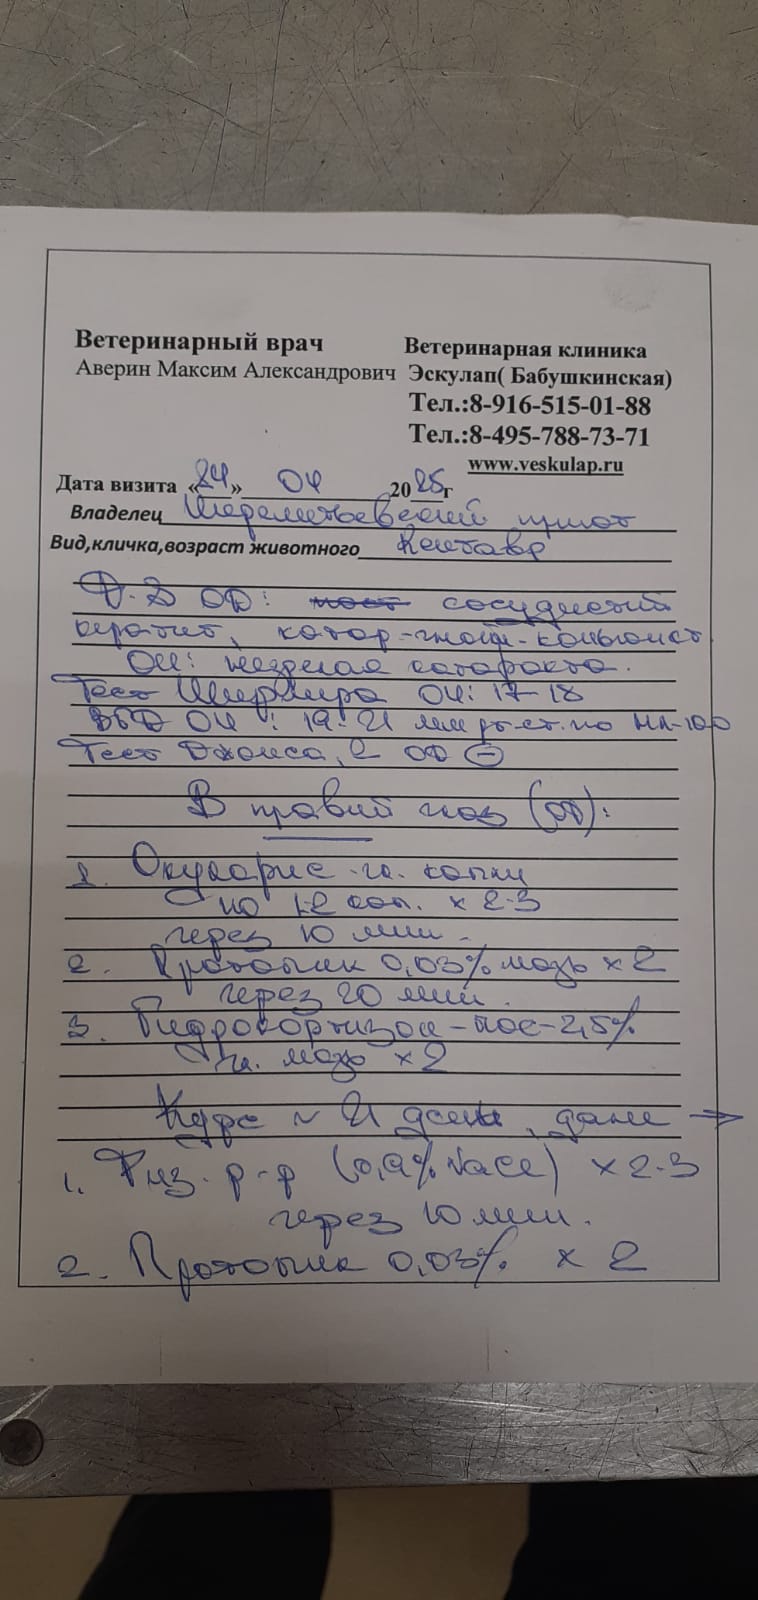 Ветеринарный врач
Аверин Максим Александрович
Ветеринарная клиника
Эскулап( Бабушкинская)
Тел.:8-916-515-01-88
Тел.:8-495-788-73-71
www.veskulap.ru
Дата визита «24» 04 2025г
Владелец Шереметьевский приют
Вид,кличка,возраст животного Кентавр
OD: сосудистый
кератит, катар-гнойн-конъюнст
OU: ядерная катаракта.
Тест Ширмера OU: 17-18
ВГД OU : 19-21 мм рт.ст. по
Тест Джонса, 2 OD (–)
В правый глаз (OD):
1. Окухарис гл. капли
по 1-2 кап. x 2-3
через 10 мин.
2. Протопик 0,03% мазь x 2
через 20 мин.
3. Гидрокортизон-пос-2,5%
гл. мазь x 2
Курс ~ 21 день, далее →
1. Физ. р-р (0,9% NaCl) x 2-3
через 10 мин.
2. Протопик 0,03% x 2